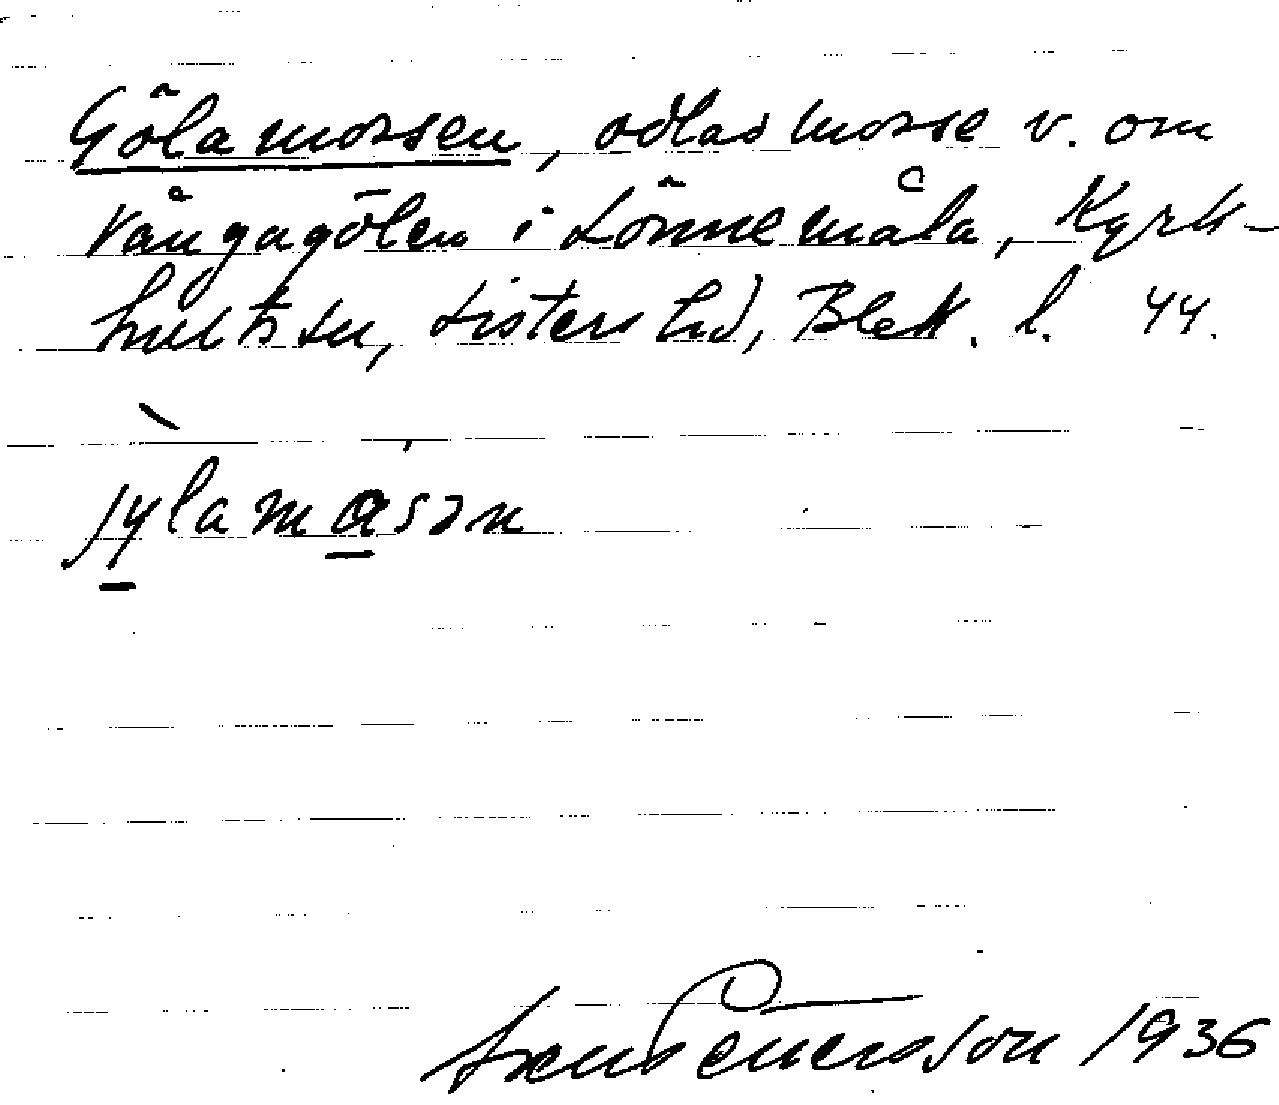 Gölamossen, odlad mosse v. om
Vångagölen i Lönnemåla, Kyrk-
hults sn, Listers hd, Blek. l. 44.
jylamåsən
Pettersson 1936